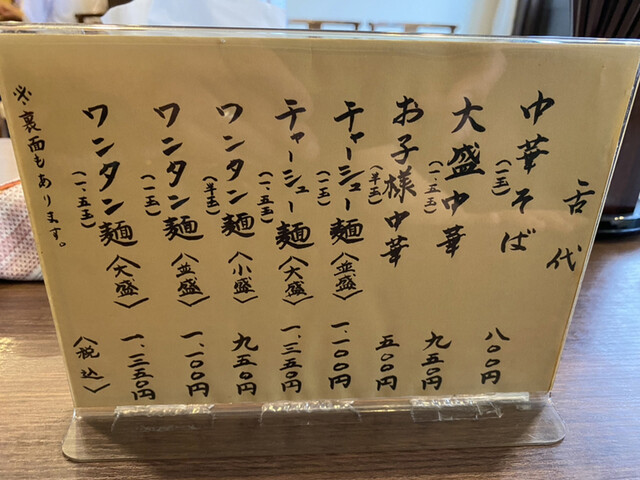 舌代
中華そば(一玉) 八〇〇円
大盛中華(一.五玉) 九五〇円
お子様中華(半玉) 五〇〇円
チャーシュー麺(一玉)〈並盛〉 一.一〇〇円
チャーシュー麺(一.五玉)〈大盛〉 一.三五〇円
ワンタン麺(半玉)〈小盛〉 九五〇円
ワンタン麺(一玉)〈並盛〉 一.一〇〇円
ワンタン麺(一.五玉)〈大盛〉 一.三五〇円
※裏面もあります。 〈税込〉